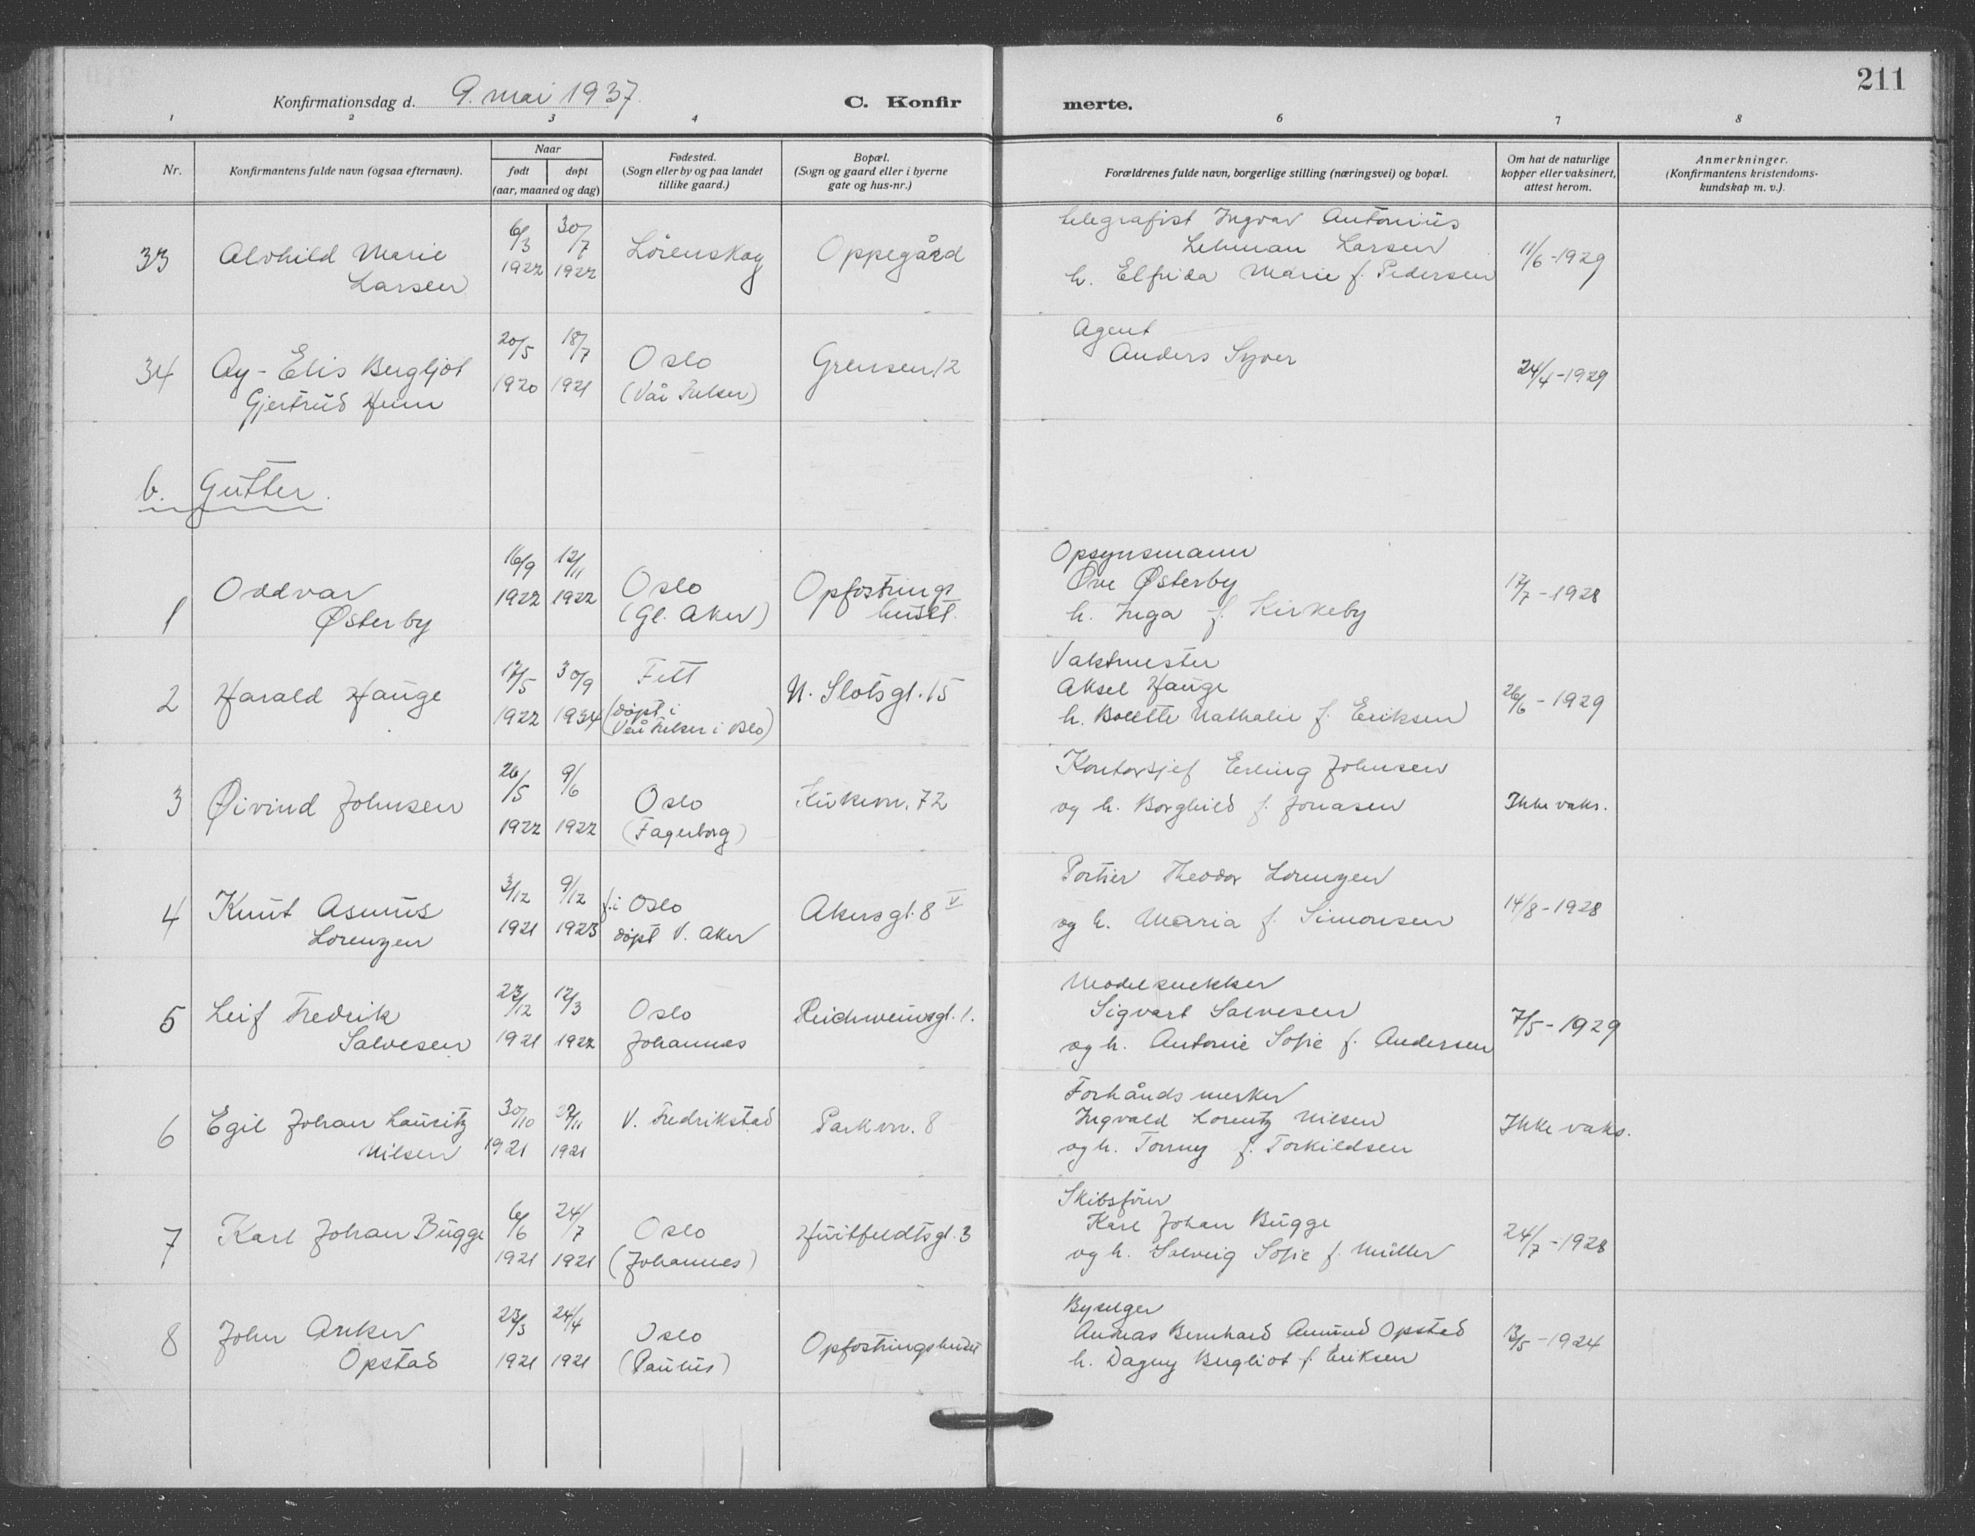 211
Konfirmationsdag d. 9. mai 1937. C. Konfir merte.
1 2 3 4 6 7 8
Nr.
Konfirmantens fulde navn (ogsaa efternavn).
Naar
født døpt
(aar, maaned og dag)
Fødested.
(Sogn eller by og paa landet
tillike gaard.)
Bopæl.
(Sogn og gaard eller i byerne
gate og hus-nr.)
Forældrenes fulde navn, borgerlige stilling (næringsvei) og bopæl.
Om hat de naturlige
kopper eller vaksinert,
attest herom.
Anmerkninger.
(Konfirmantens kristendoms-
kundskap m. v.).
33
Alvhild Marie
Larsen
6/3
1922
30/7
1922
Lörenskog
Oppegård
telegrafist Ingvar Antonius
Lehman Larsen
h. Elfrida Marie f. Pedersen
11/6-1929
34
Ay-Elis Bergljot
Gjertrud
20/5
1920
18/7
1921
Oslo
(Vår Frelser)
Grensen 12
Agent
Anders Syver
24/4-1929
b. Gutter.
1
Oddvar
Østerby
16/9
1922
12/11
1922
Oslo
(Gl. Aker)
Opfostrings
huset.
Opsynsmann
Ove Østerby
h. Inga f. Kirkeby
17/7-1928
2
Harald Hauge
17/5
1922
30/9
1934
Fett
(döpt i
Vår Frelser i Oslo)
N. Slotsgt. 15
Vaktmester
Aksel Hauge
h. Bolette Nathalie f. Eriksen
26/6-1929
3
Øivind Johnsen
26/5
1922
9/6
1922
Oslo
(Fagerborg)
Kirkevn. 72
Kontorsjef Erling Johnsen
og h. Borghild f. Jonasen
Ikke vaks.
4
Knut Asmus
Lorenzen
3/12
1921
9/12
1923
f. i Oslo
döpt V. Aker
Akersgt. 8 V
Portier Theodor Lorenzen
og h. Maria f. Simonsen
14/8-1928
5
Leif Fredrik
Salvesen
23/12
1921
12/3
1922
Oslo
Johannes
Reichweinsgt. 1.
Modelsnekker
Sigvart Salvesen
og h. Antonie Sofie f. Andersen
7/5-1929
6
Egil Johan Lauritz
Nilsen
30/10
1921
1921
V. Fredrikstad
Parkvn. 8
Forhåndsmerker
Ingvald Lorentz Nilsen
og h. Tonny f. Torkildsen
Ikke vaks.
7
Karl Johan Bugge
6/6
1921
24/7
1921
Oslo
(Johannes)
Huitfeldtsgt. 3
Skibsförer
Karl Johan Bugge
og h. Solveig Sofie f. Müller
24/7-1928
8
John Anker
Opstad
23/3
1921
24/4
1921
Oslo
(Paulus)
Opfostringshuset
Byselger
Andreas Bernhard Amund Opstad
h. Dagny Bergliot f. Eriksen
13/5-1924